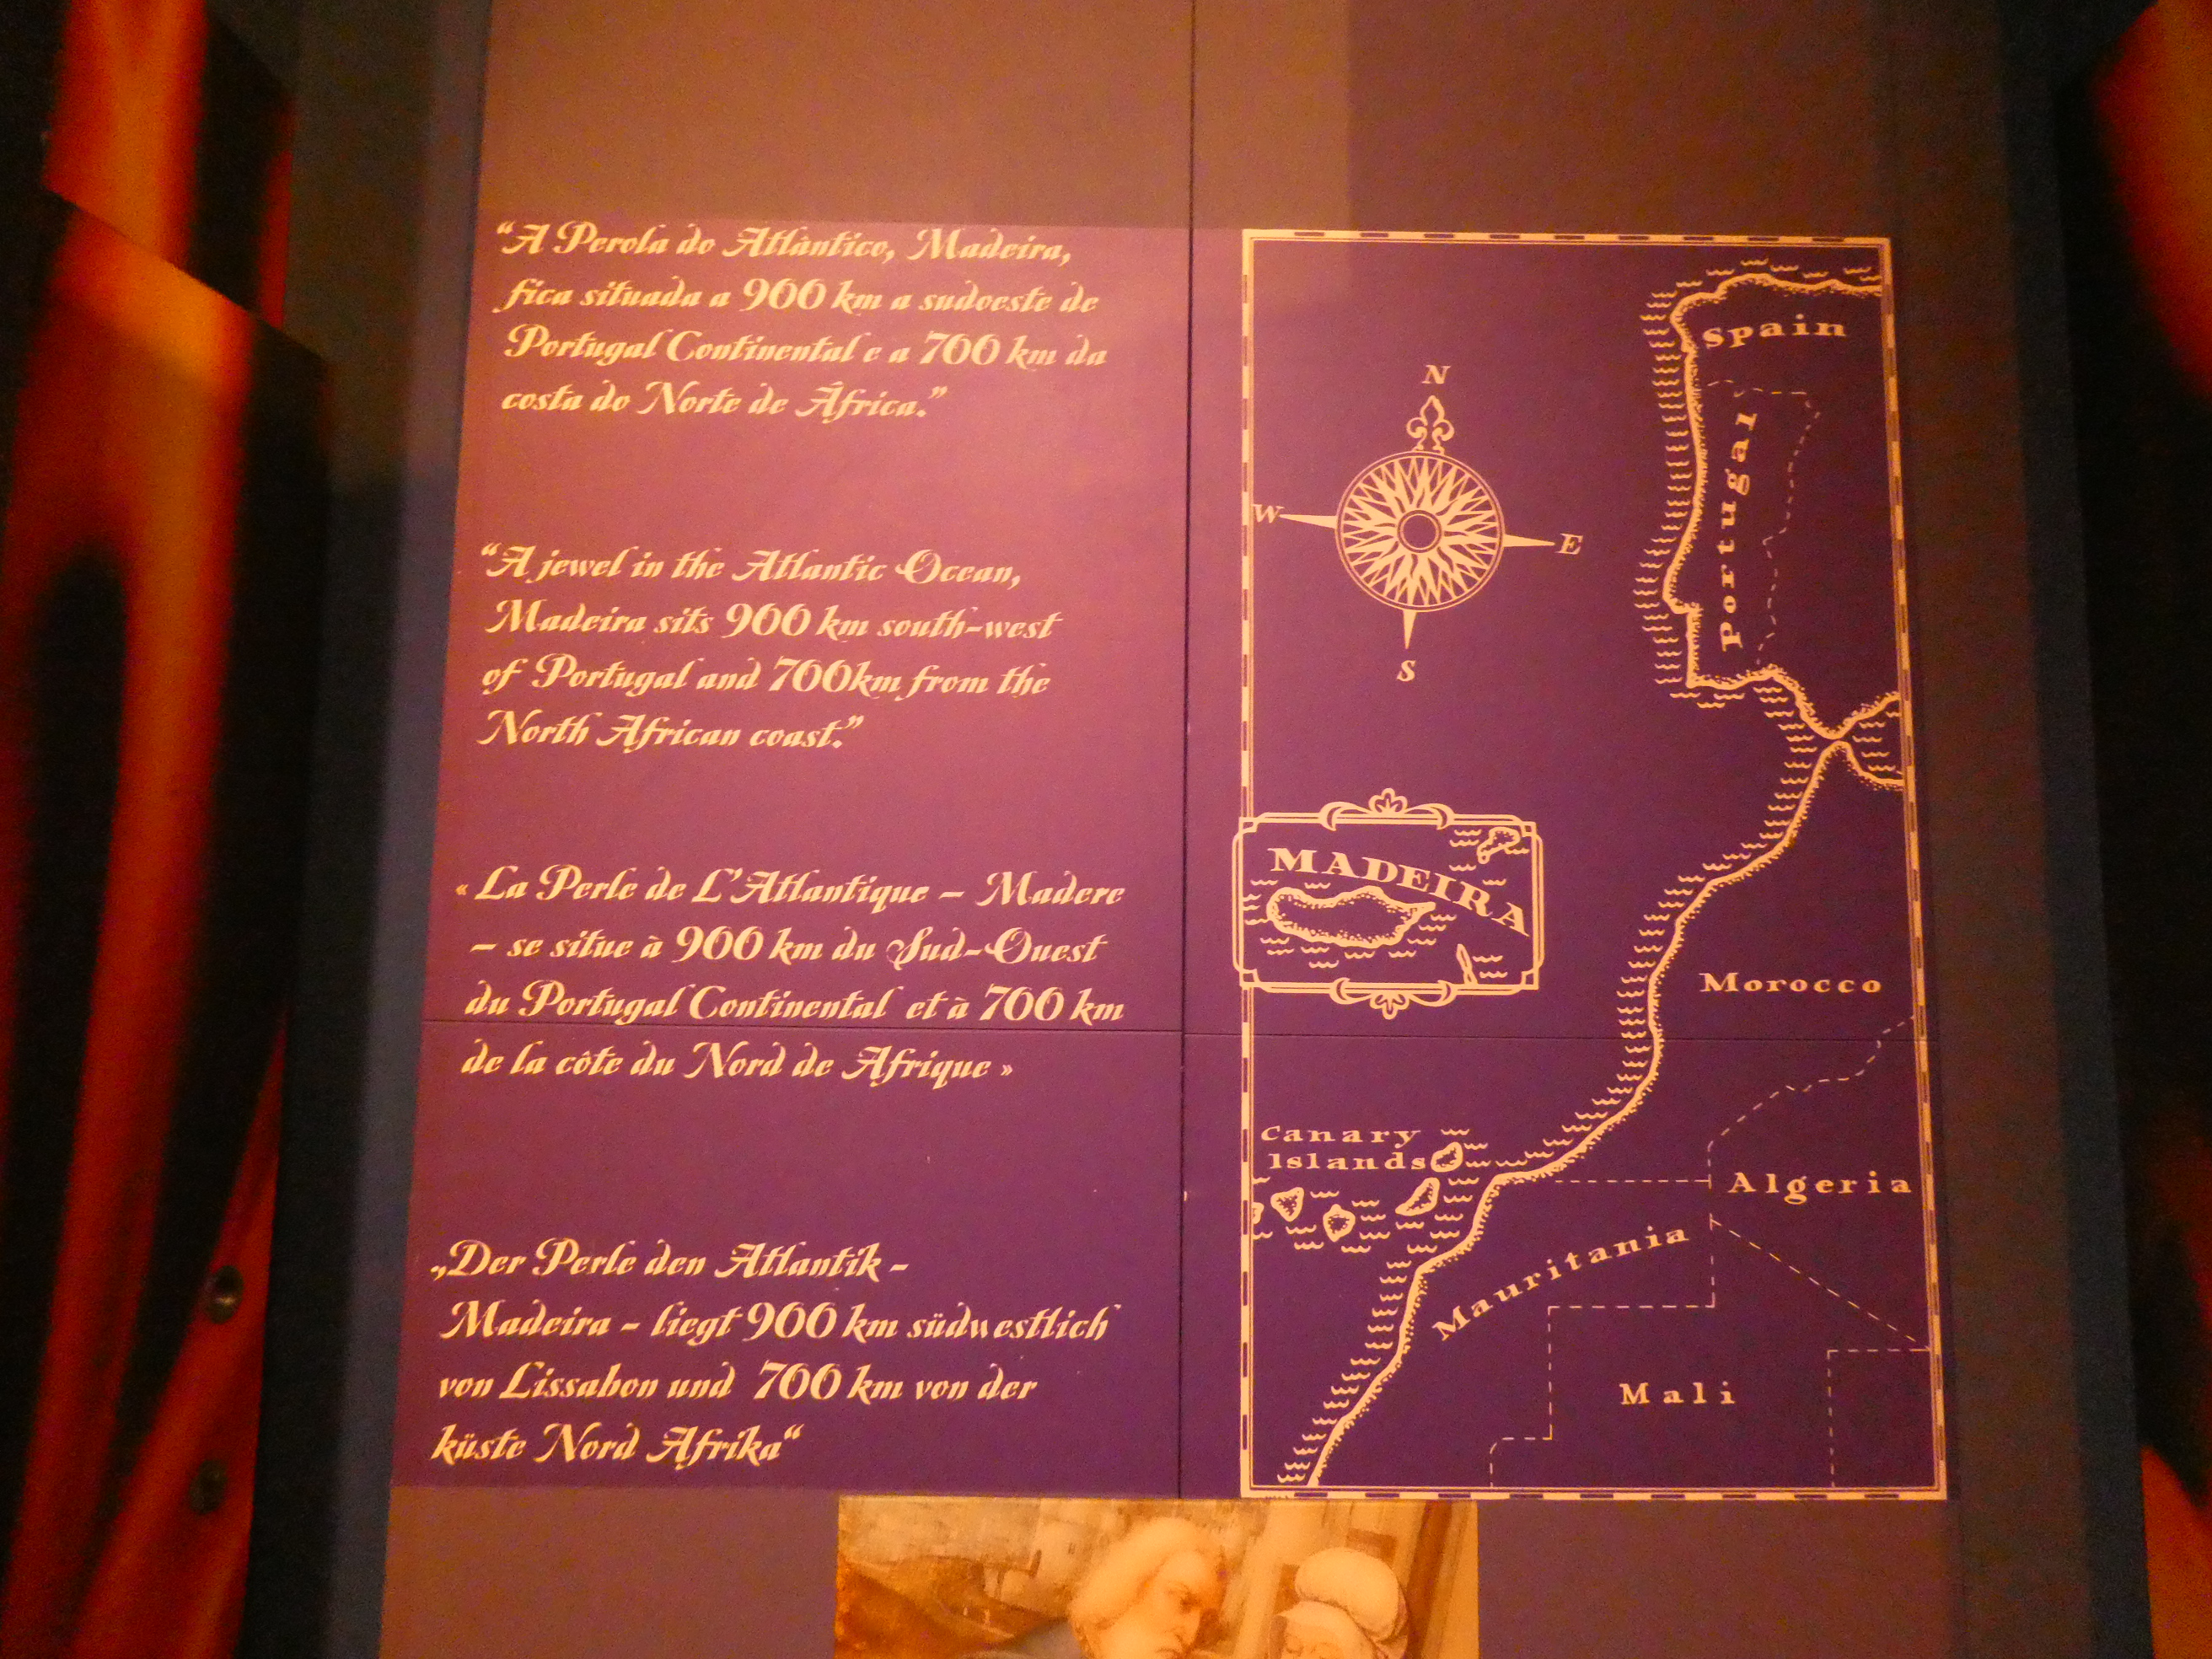 “A Perola do Atlântico, Madeira,
fica situada a 900 km a sudoeste de
Portugal Continental e a 700 km da
costa do Norte de África.”
“A jewel in the Atlantic Ocean,
Madeira sits 900 km south-west
of Portugal and 700km from the
North African coast.”
« La Perle de L’Atlantique – Madere
– se situe à 900 km du Sud-Ouest
du Portugal Continental et à 700 km
de la côte du Nord de Afrique »
„Der Perle den Atlantik -
Madeira - liegt 900 km südwestlich
von Lissabon und 700 km von der
küste Nord Afrika“
Spain
Portugal
N
W
E
S
MADEIRA
Morocco
Canary
Islands
Algeria
Mauritania
Mali